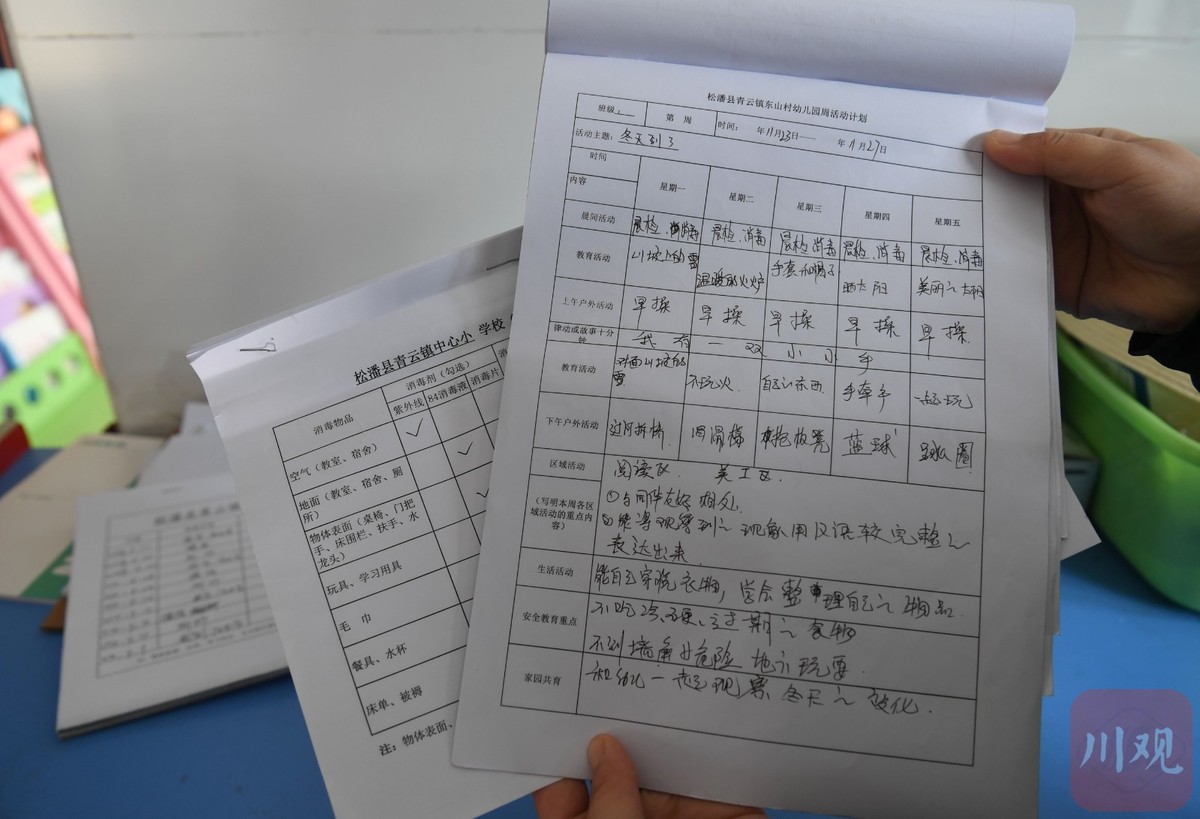 松潘县青云镇东山村幼儿园周活动计划
班级: 第 周 时间: 年11月23日—— 年11月27日
活动主题: 冬天到了
时间
内容 星期一 星期二 星期三 星期四 星期五
晨间活动 晨检、消毒 晨检、消毒 晨检、消毒 晨检、消毒 晨检、消毒
教育活动 山坡上的雪 温暖的火炉 手套和帽子 晒太阳 美丽的
上午户外活动 早操 早操 早操 早操 早操
律动或故事十分钟 我有一双小小手
教育活动 对面山坡的雪 不玩火 自己的东西 手牵手 一起玩
下午户外活动 过河拆桥 滑滑梯 板凳 蓝球 圈
区域活动 阅读区 美工区
(写明本周各区域活动的重点内容) ①与同伴友好相处.
②能将观察到的现象用汉语较完整的
表达出来
生活活动 能自己穿脱衣物,学会整理自己的物品.
安全教育重点 不吃过期的食物
不到墙角等危险地方玩耍.
家园共育 和幼儿一起观察冬天的变化.
松潘县青云镇中心小 学校
消毒物品 消毒剂(勾选)
紫外线 84消毒液 消毒片
空气(教室、宿舍) ✓
地面(教室、宿舍、厕所) ✓
物体表面(桌椅、门把手、床围栏、扶手、水龙头) ✓
玩具、学习用具
毛 巾
餐具、水杯
床单、被褥
注: 物体表面、
川观